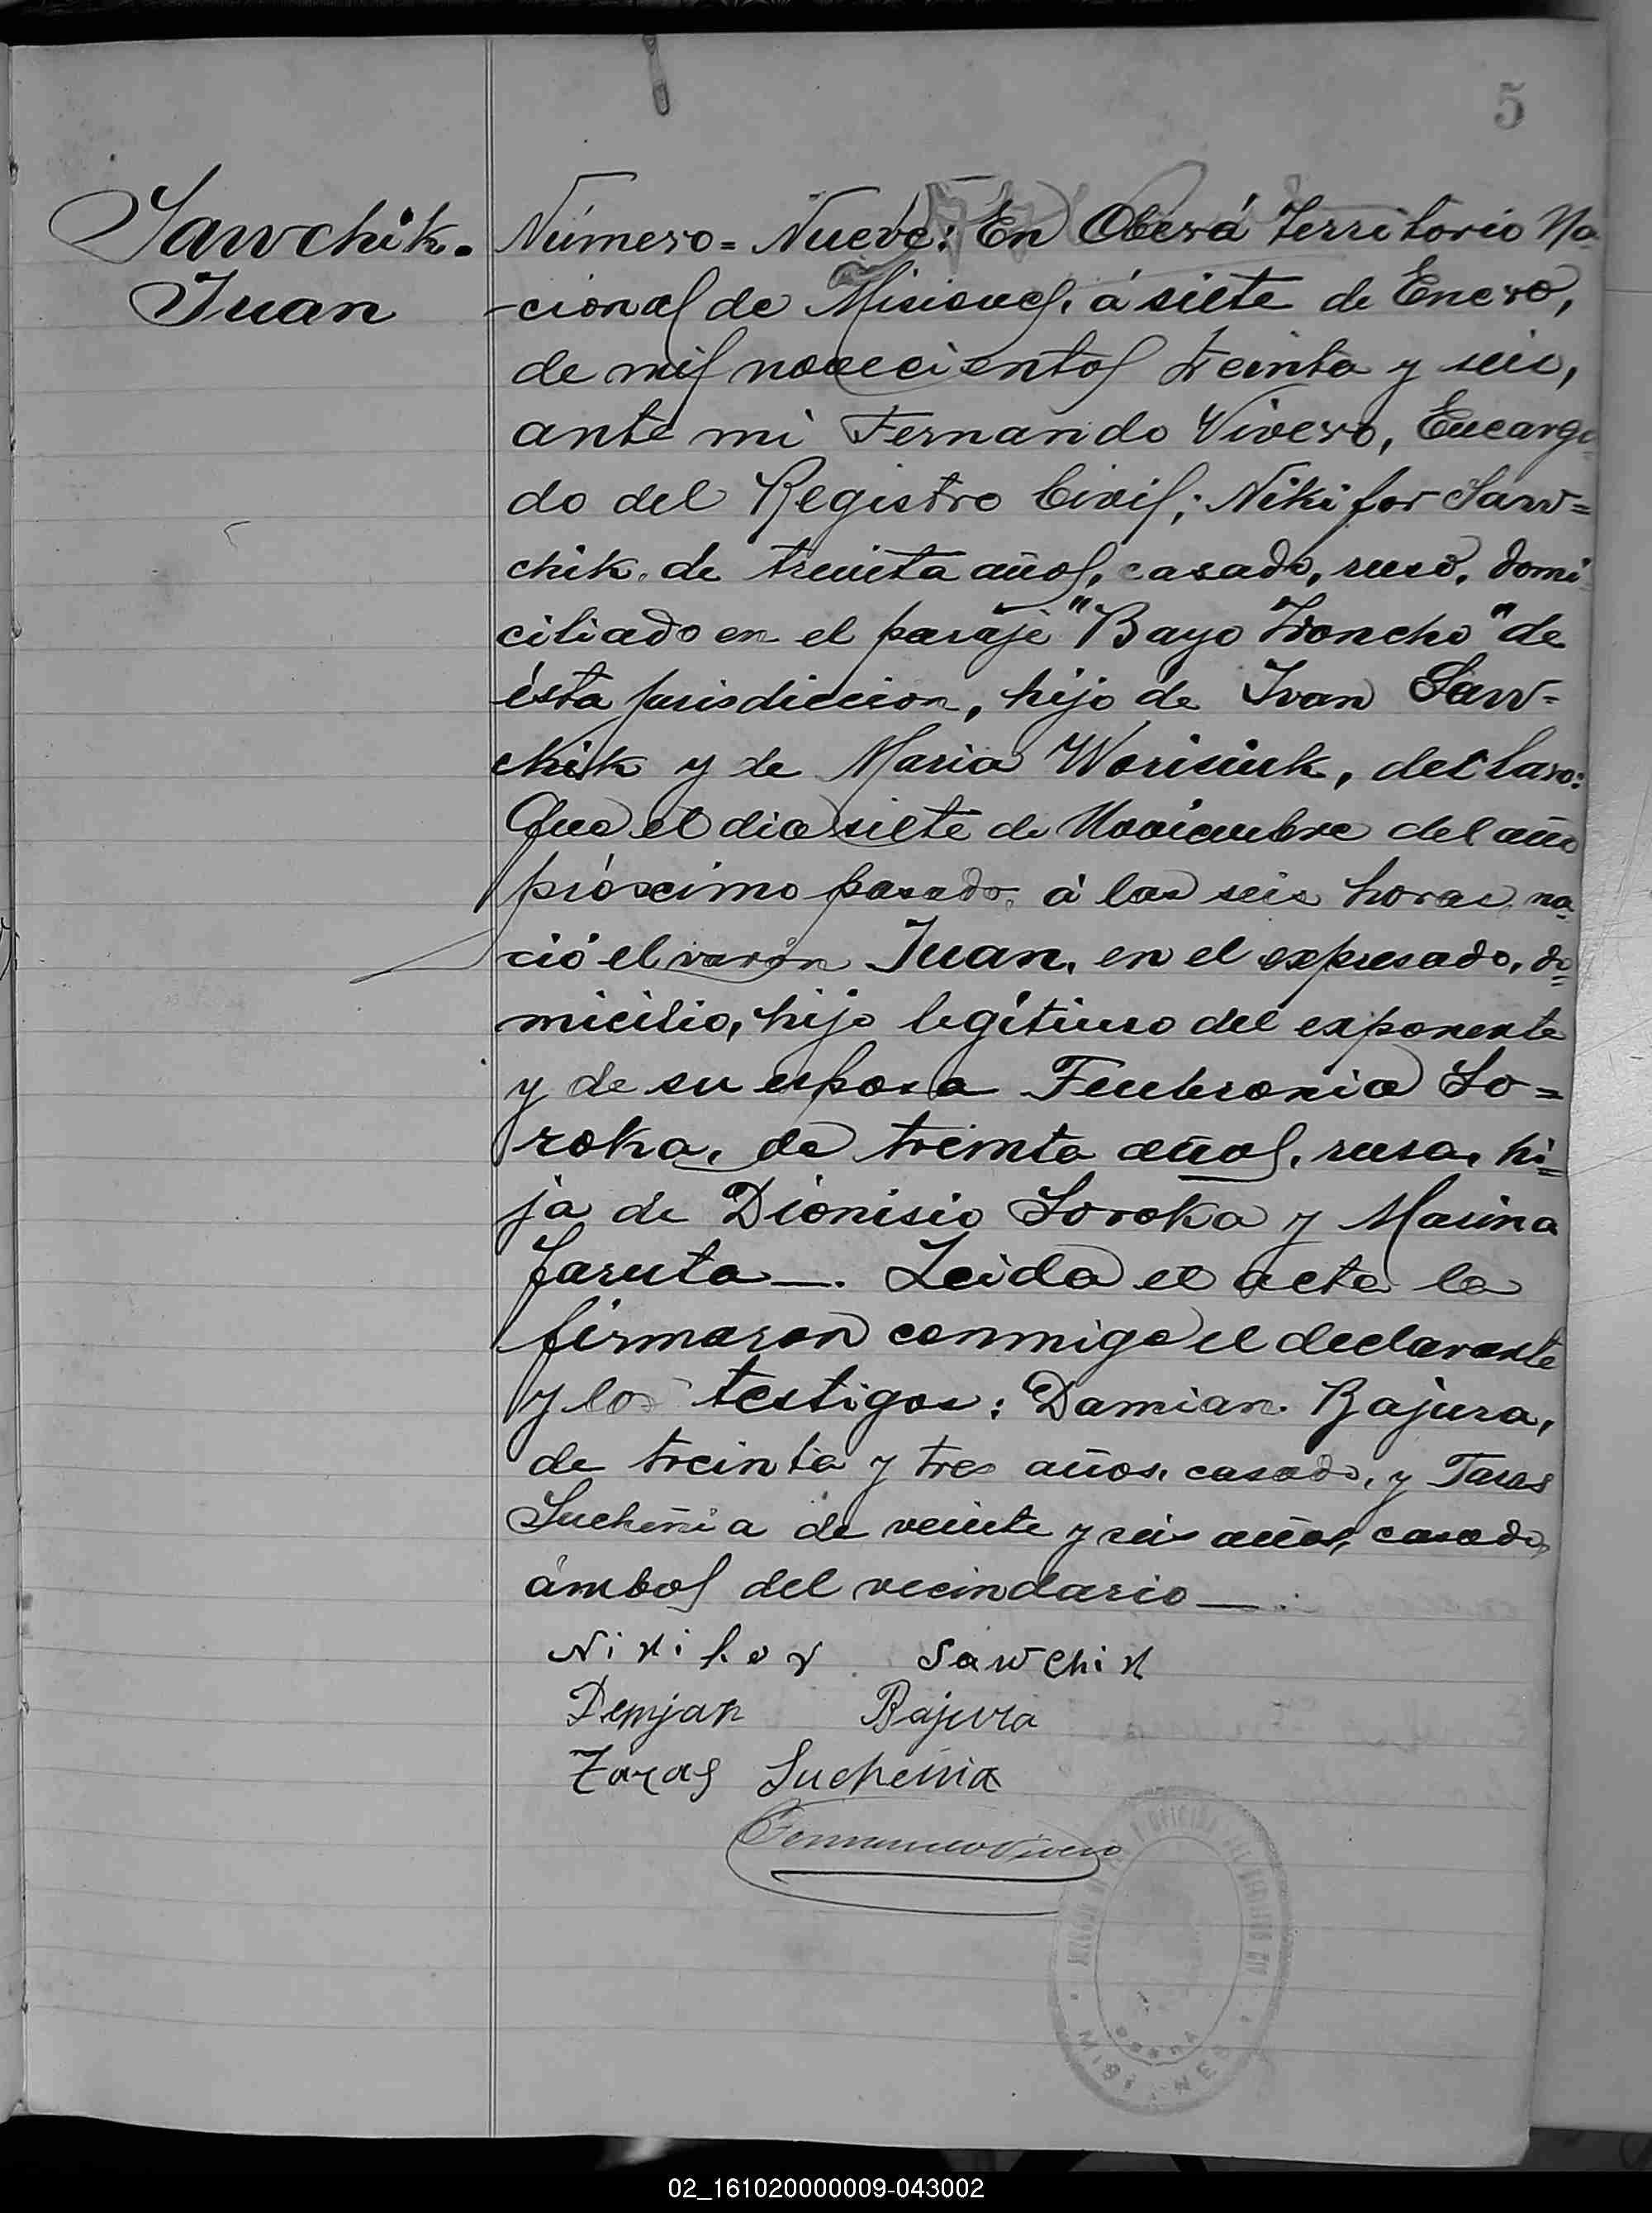 5
Sawchik.
Juan
Número = Nueve: En Oberá Territorio Na
-cional de Misiones, á siete de Enero,
de mil novecientos treinta y seis,
ante mi Fernando Vivero, Encarga
do del Registro Civil; Nikifor Saw=
chik. de treinta años, casado, ruso, domi-
ciliado en el paraje "Bayo Troncho" de
ésta jurisdiccion, hijo de Ivan Saw-
chik y de Maria Worisiuk, declaro:
Que el dia siete de Noviembre del año
próximo pasado, á las seis horas na-
ció el varón Juan, en el expresado, do=
micilio, hijo legítimo del exponente
y de su esposa Feubronia So=
roka, de treinta años, rusa, hi=
ja de Dionisio Soroka y Marina
Jaruta —. Leida el acta la
firmaron conmigo el declarante
y los testigos: Damian. Bajura,
de treinta y tres años, casado, y Taras
Sucheñia de veinte y seis años, casado,
ámbos del vecindario —.
Nikifor Sawchik
Demjan Bajura
Taras Suchenia
Fernando Vivero
MISIONES
02_161020000009-043002